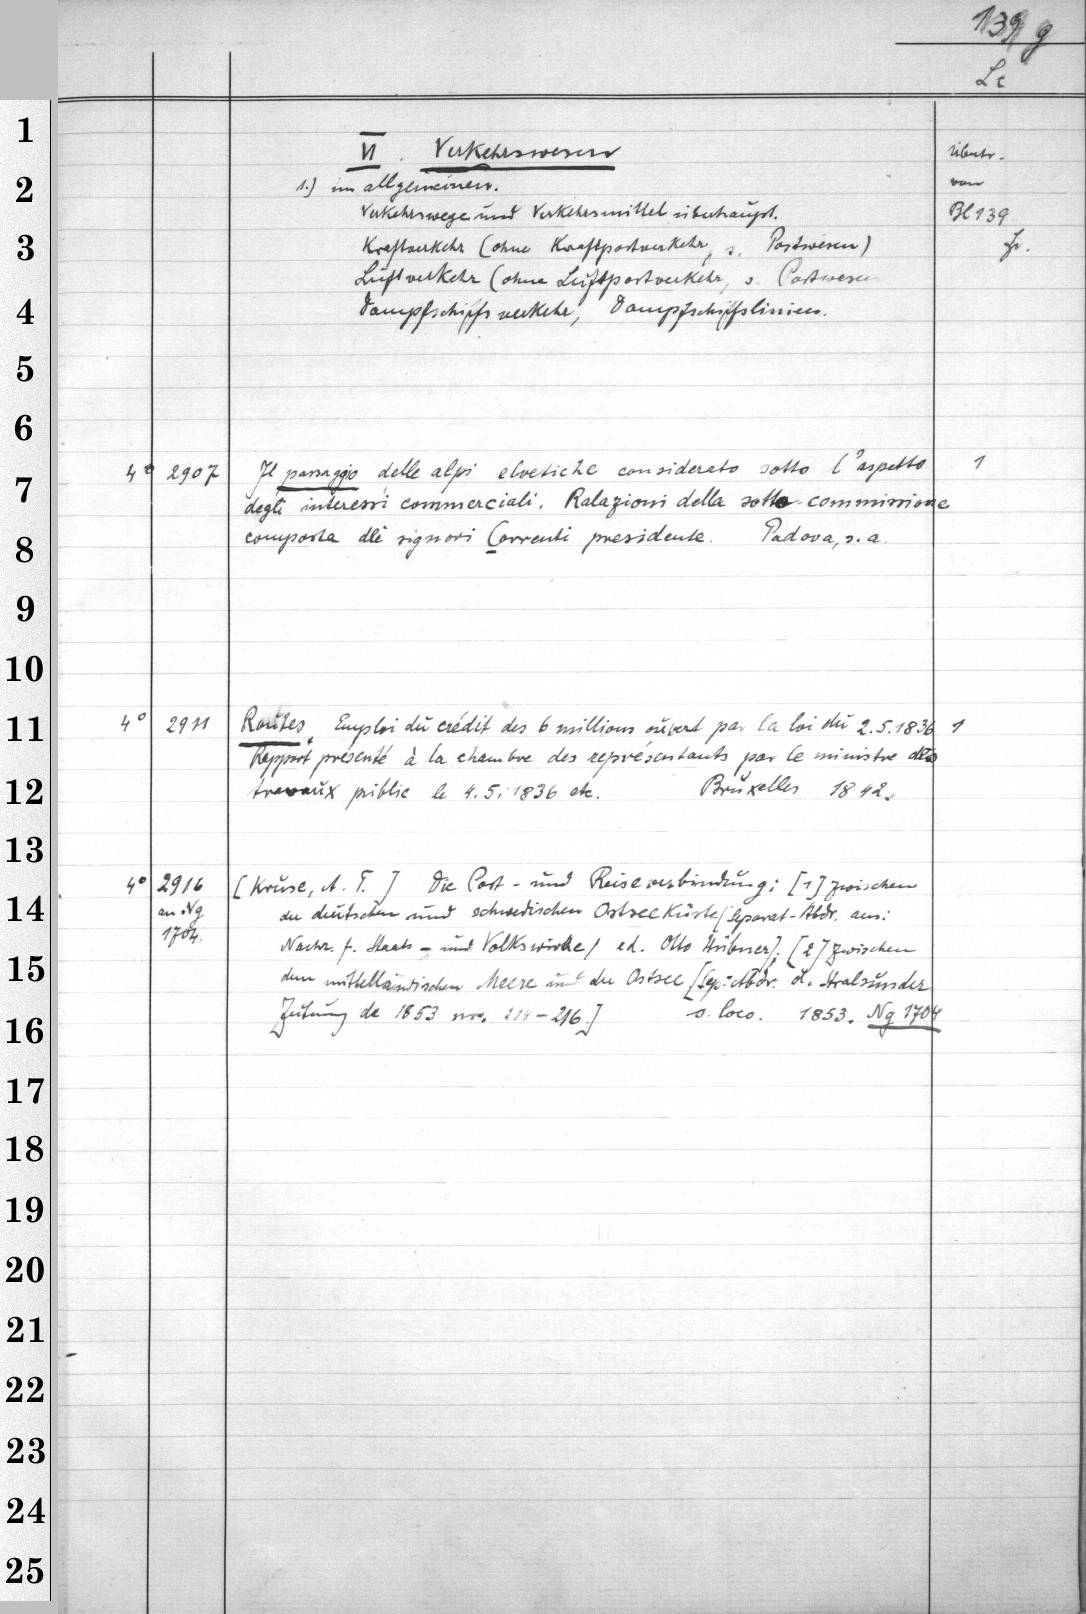 139 g
Lc
VI. Verkehrswesen
übertr.
1.) im allgemeinen.
von
Verkehrswege und Verkehrsmittel überhaupt.
Bl 139
Kraftverkehr (ohne Kraftpostverkehr, s. Postwesen)
Luftverkehr (ohne Luftpostverkehr, s. Postwesen
Dampfschiffsverkehr, Dampfschiffslinien.
4° 2907 Il passaggio delle alpi elvetiche considerato sotto l'aspetto 1
degli interessi commerciali. Relazioni della sotto commissione
composta dei signori Correnti presidente. Padova, s. a.
4° 2911 Routes. Emploi du crédit des 6 millions ouvert par la loi du 2.5.1836 1
Rapport présenté à la chambre des représentants par le ministre des
travaux public le 4.5.1836 etc. Bruxelles 1842.
4° 2916 [Kruse, A. T.] Die Post- und Reiseverbindung; [1] zwischen
an Ng der deutschen und schwedischen Ostseeküste [Separat-Abdr. aus:
1704. Nachr. f. Staats- und Volkswirthe / ed. Otto Hübner]. [2] zwischen
dem mittelländischen Meere und der Ostsee [Sep.-Abdr. d. Stralsunder
Zeitung de 1853 nro. 214-216.] s. loco. 1853. Ng 1704
1
2
3
4
5
6
7
8
9
10
11
12
13
14
15
16
17
18
19
20
21
22
23
24
25